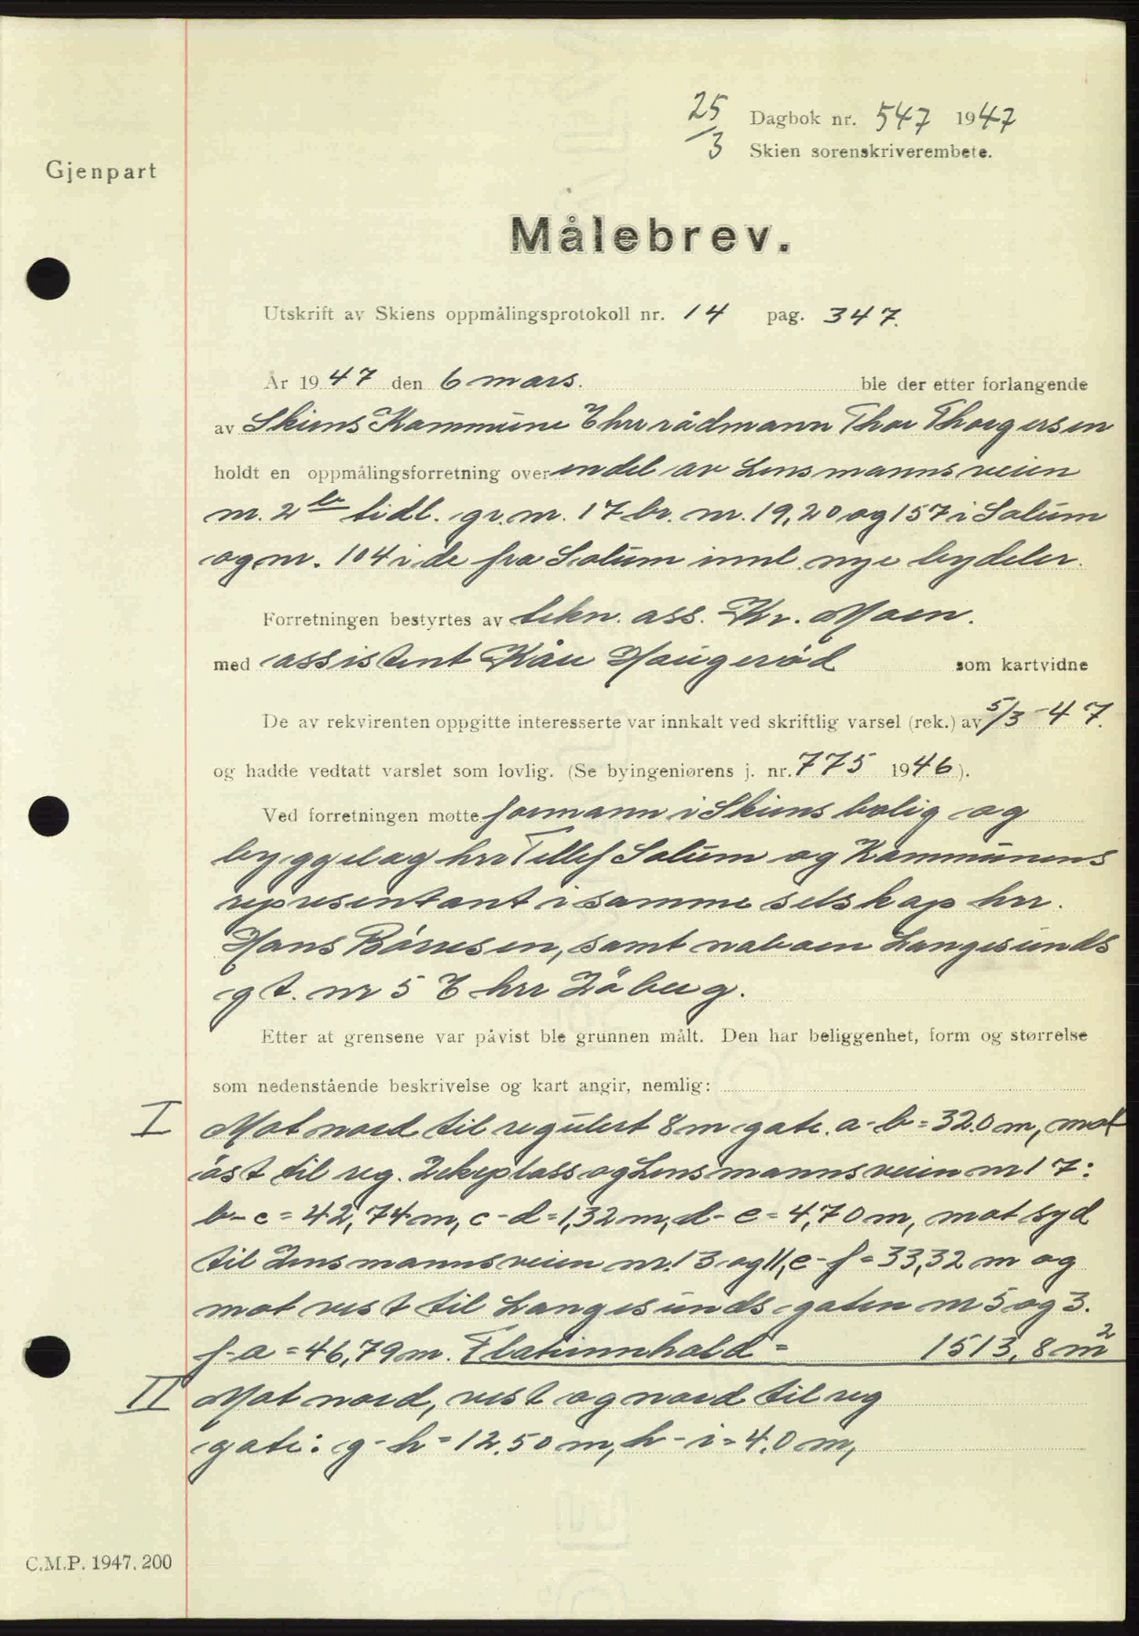 25/3 Dagbok nr. 547 1947
Skien sorenskriverembete.
Gjenpart
Målebrev.
Utskrift av Skiens oppmålingsprotokoll nr. 14 pag. 347.
År 1947 den 6 mars. ble der etter forlangende
av Skiens Kommune v/hrr rådmann Thor Thorgersen
holdt en oppmålingsforretning over endel av Lensmannsveien
nr. 2b tidl. gr. nr. 17 br. nr. 19, 20 og 157 i Solum
og nr. 104 i de fra Solum innl. nye bydeler.
Forretningen bestyrtes av tekn. ass. Kr. Moen.
med assistent Kåre Haugerød som kartvidne
De av rekvirenten oppgitte interesserte var innkalt ved skriftlig varsel (rek.) av 5/3-47.
og hadde vedtatt varslet som lovlig. (Se byingeniørens j. nr. 775 1946).
Ved forretningen møtte formann i Skiens bolig og
byggelag hrr Tellef Solum og Kommunens
representant i samme selskap hrr.
Hans Børresen, samt naboen Langesunds
gt. nr 5
Etter at grensene var påvist ble grunnen målt. Den har beliggenhet, form og størrelse
som nedenstående beskrivelse og kart angir, nemlig:
I Mot nord til regulert 8 m gate. a-b = 32.0 m, mot
øst til reg. Lekeplass og Lensmannsveien nr 17:
b-c = 42,74 m, c-d = 1,32 m, d-e = 4,70 m, mot syd
til Lensmannsveien nr. 13 og 11, e-f = 33,32 m og
mot vest til Langesundsgaten nr 5 og 3.
f-a = 46,79 m. Flateinnhold = 1513,8 m2
II Mot nord, vest og nord til reg
gate: g-h = 12.50 m, h-i = 4.0 m,
C.M.P. 1947. 200